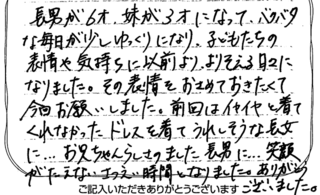 長男が6才、妹が3才になって、バタバタ
な毎日が少しゆっくりになり、子どもたちの
表情や気持ちに以前より、よりそえる日々に
なりました。その表情をおさめておきたくて
今回お願いしました。前回はイヤイヤと着て
くれなかったドレスを着てうれしそうな長女
に…お兄ちゃんらしさのました長男に…笑顔
がたえない 時間となりました。ありがとう
ございました。
ご記入いただきありがとうございます